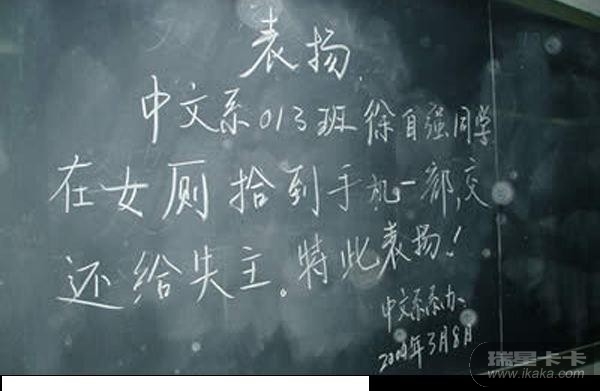 表扬
中文系013班徐自强同学
在女厕拾到手机一部,交
还给失主。特此表扬!
中文系系办
3月8日
瑞星卡卡
www.ikaka.com